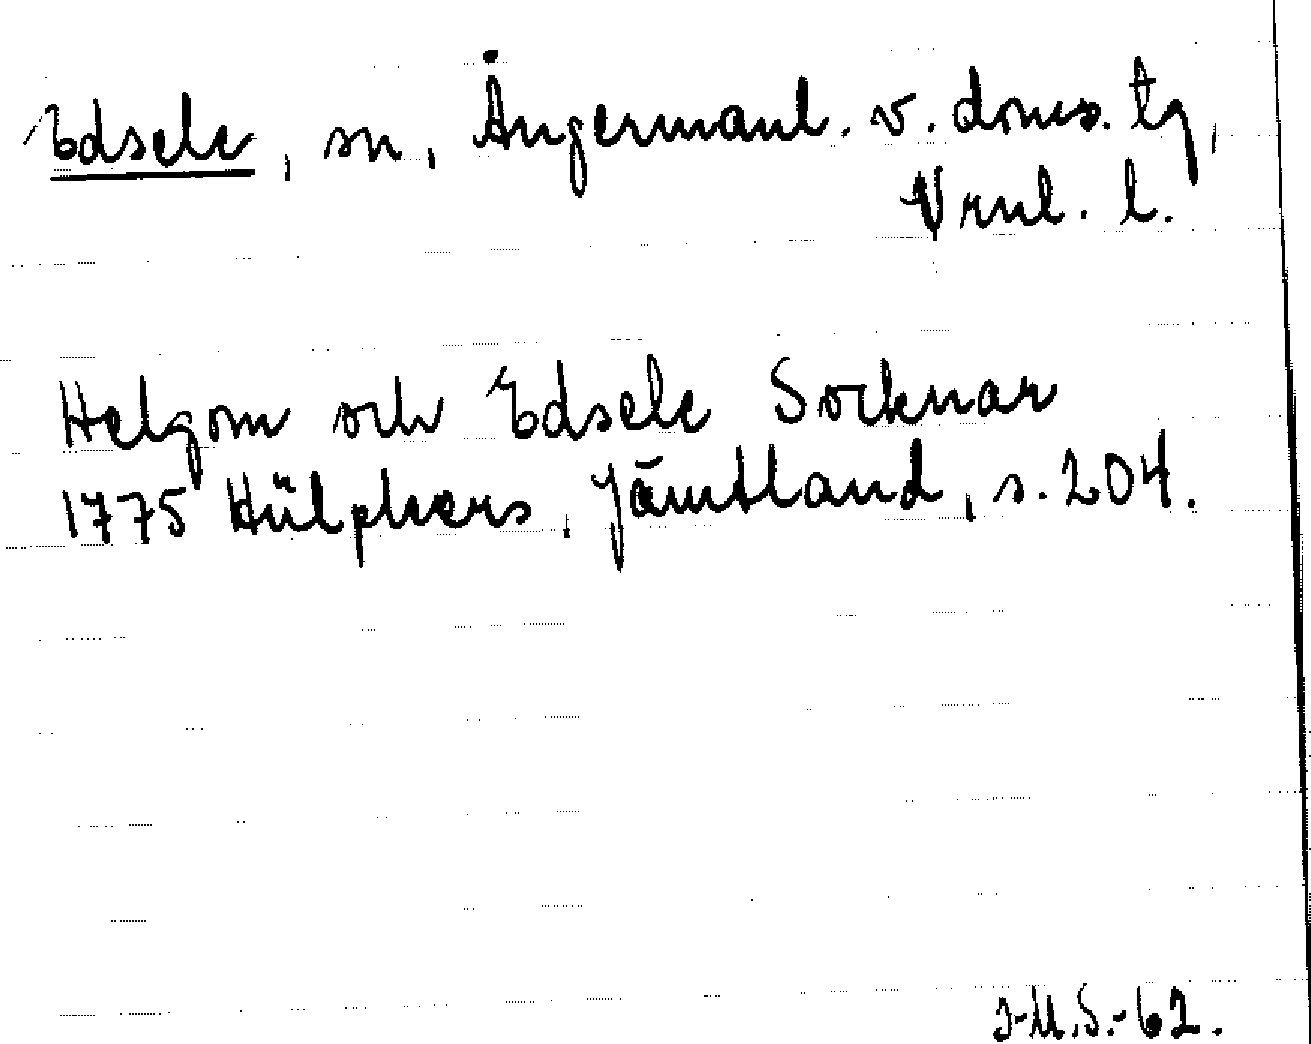 Edsele, sn, Ångermanl. v. doms. tg,
Vrnl. l.
Helgom och Edsele Socknar
1775 Hülphers, Jämtland, s. 204.
J-M.S.-62.